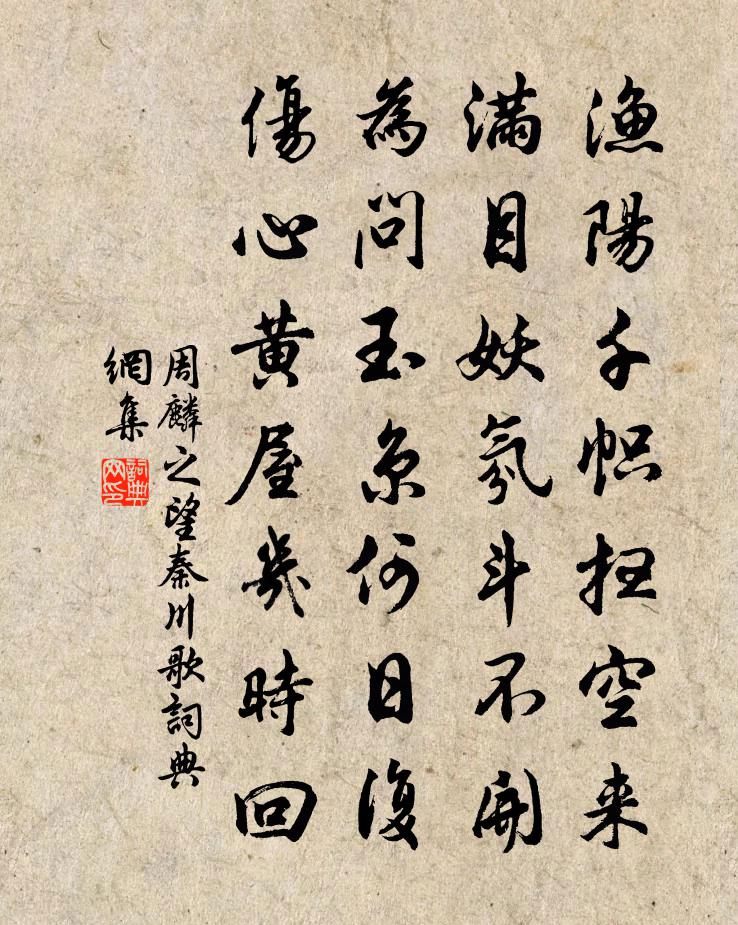 漁陽千幟抂空来
滿目妖氛斗不開
為問玉京何日復
傷心黄屋幾時回
周麟之望秦川歌詞典
網集
詞典
网印